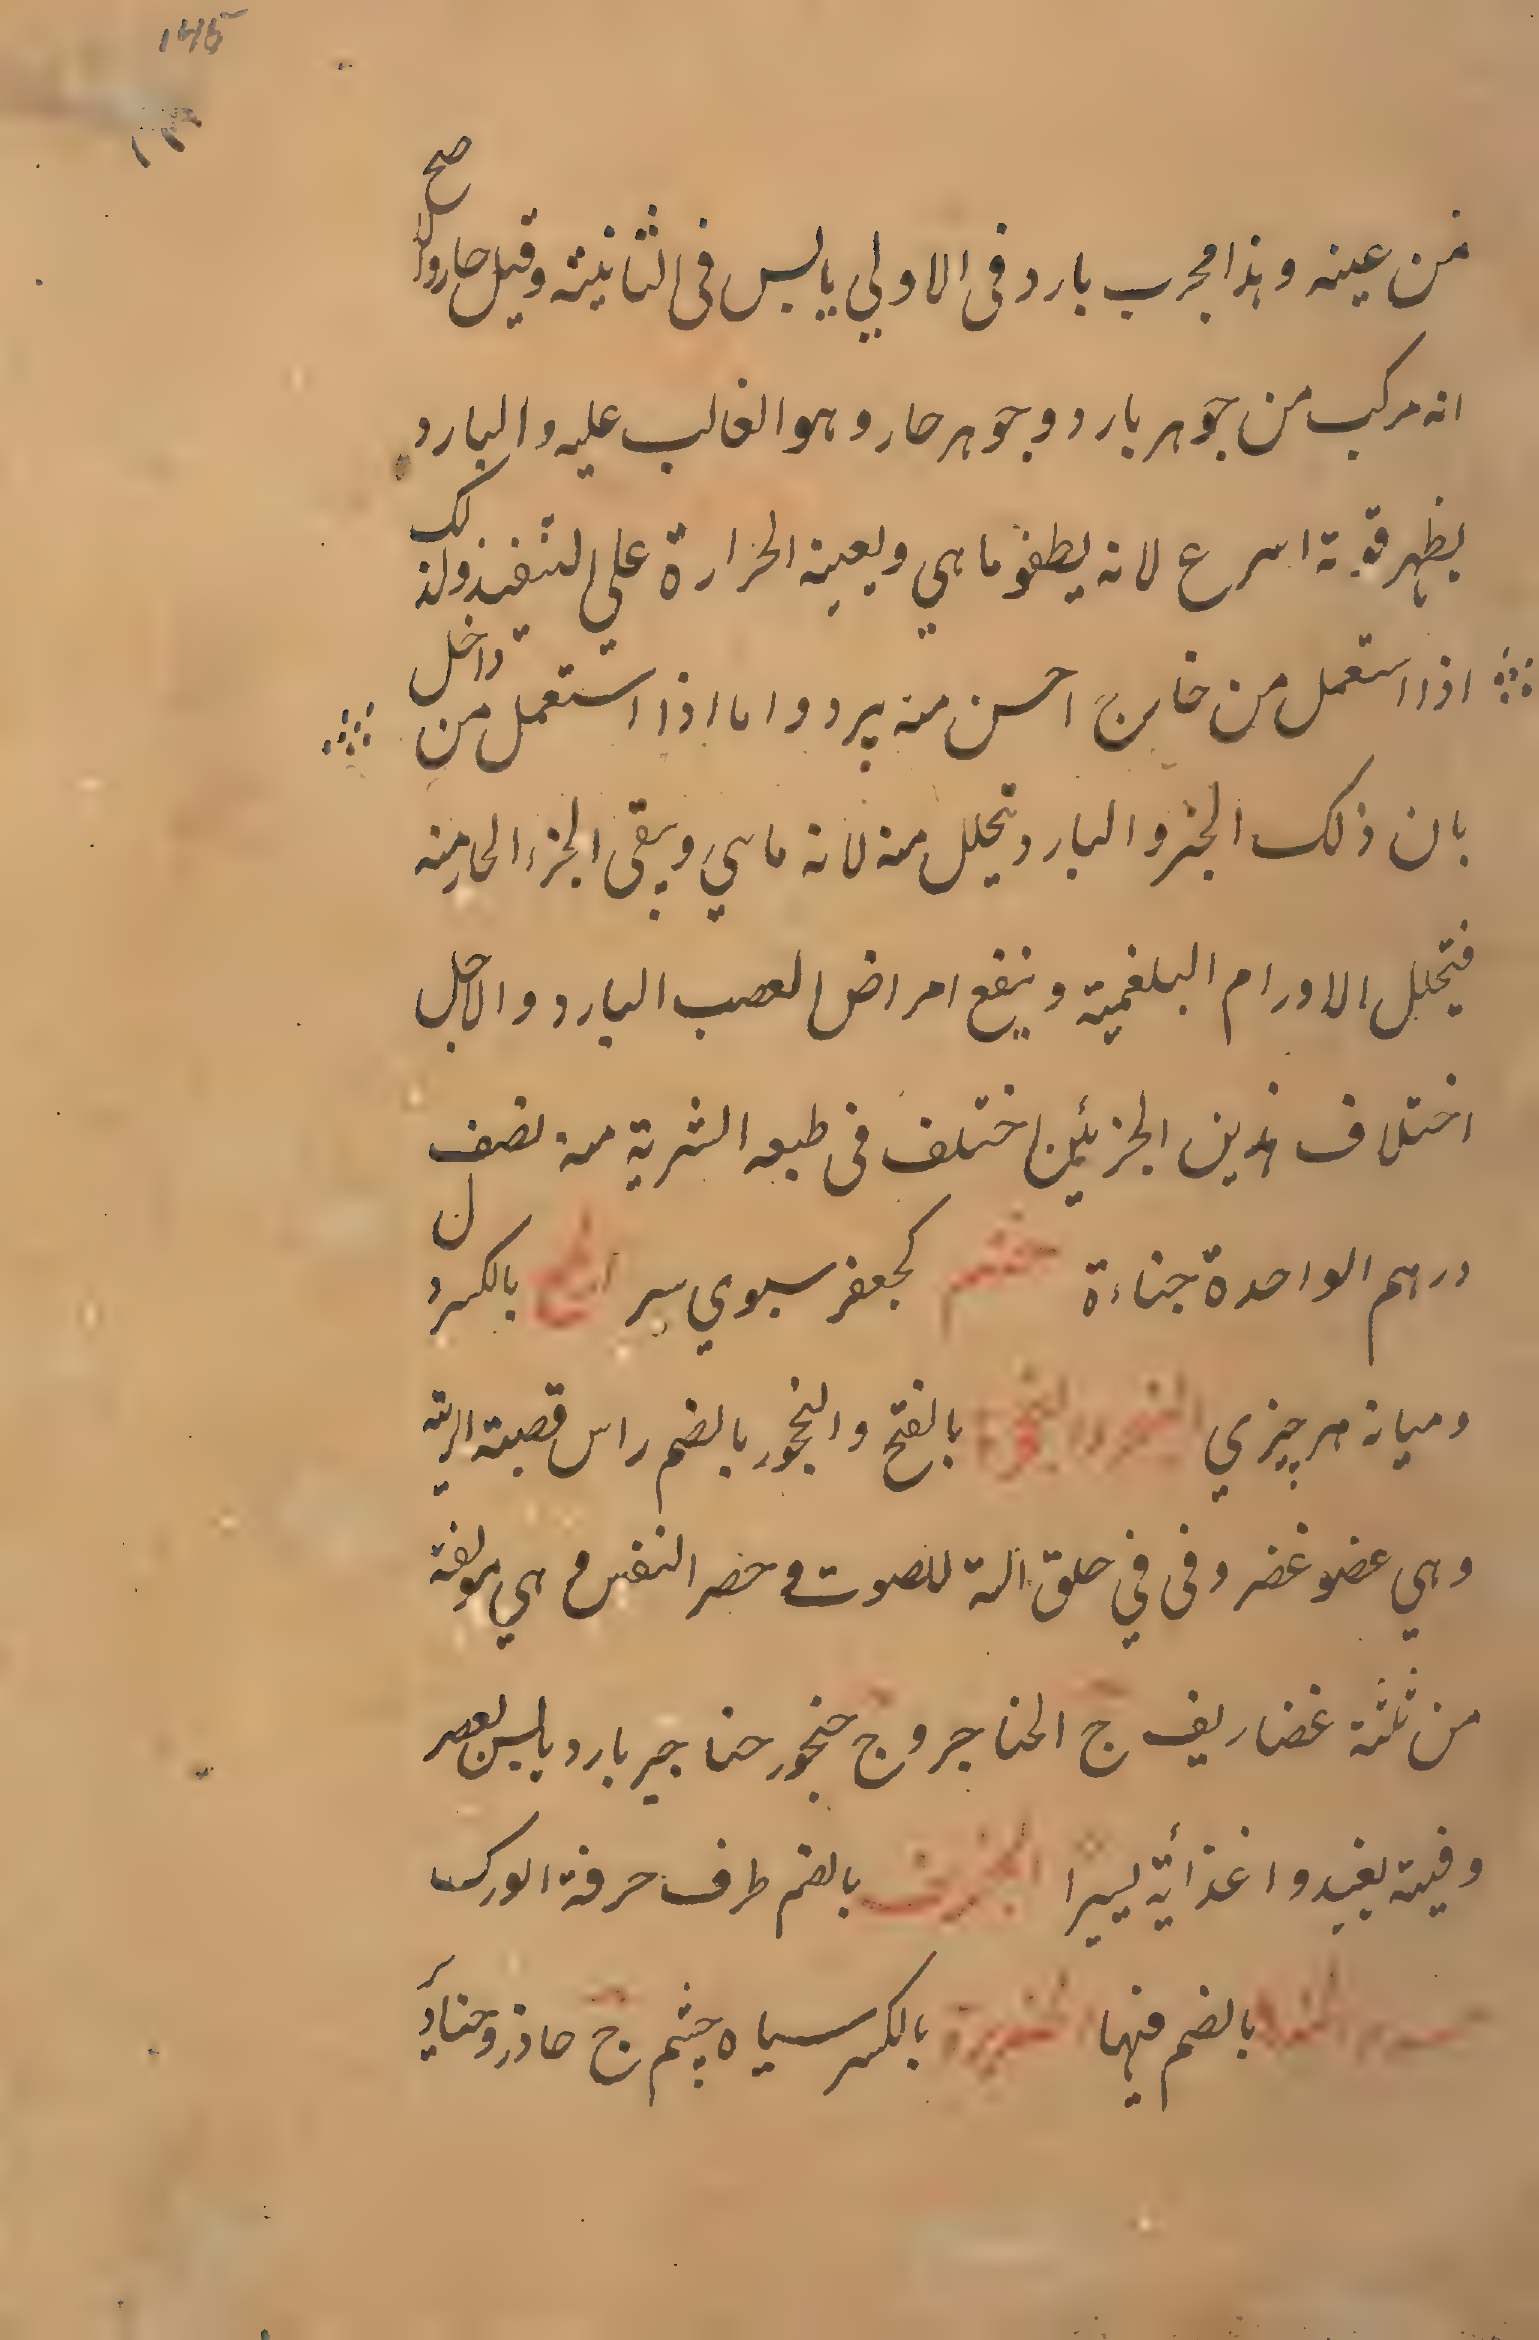 ۱۴۵
من عينه وهذا مجرب بارد فى الاولي يابس فى الثانية وقيل حار ولا صح
انه مركب من جوهر بارد وجوهر حار وهو الغالب عليه والبارد
يظهر قوته اسرع لانه يطفو ماهي ويعينه الحرارة علي التنفيذ ولذلك
اذا استعمل من خارج احسن منه يبرد واما اذا استعمل من داخل
بان ذلك الجزو البارد يتحلل منه لانه ماهي ويبقى الجزء الحار منه
فيتحلل الاورام البلغمية وينفع امراض العصب البارد والاجل
اختلاف هذين الجزئين اختلف فى طبعه الشربة منه نصف
درهم الواحدة حناءة حنتم كجعفر سبوي سبز بالكسر ل
وميانه هر چيزي الحنجر والحنجرة بالفتح والحنجور بالضم راس قصبة الرية
وهي عضو غضروفى في حلق الة للصوت و حصر النفس و هي مولفة
من ثلثة غضاريف ج الحناجر و ج حنجور حناجير بارد يابس بعصر
وفيته يفيد واغذائية يسيرا بالضم طرف حرفة الورك
بالضم فيها بالكسر سياه چشم ج حاذر وحنادر